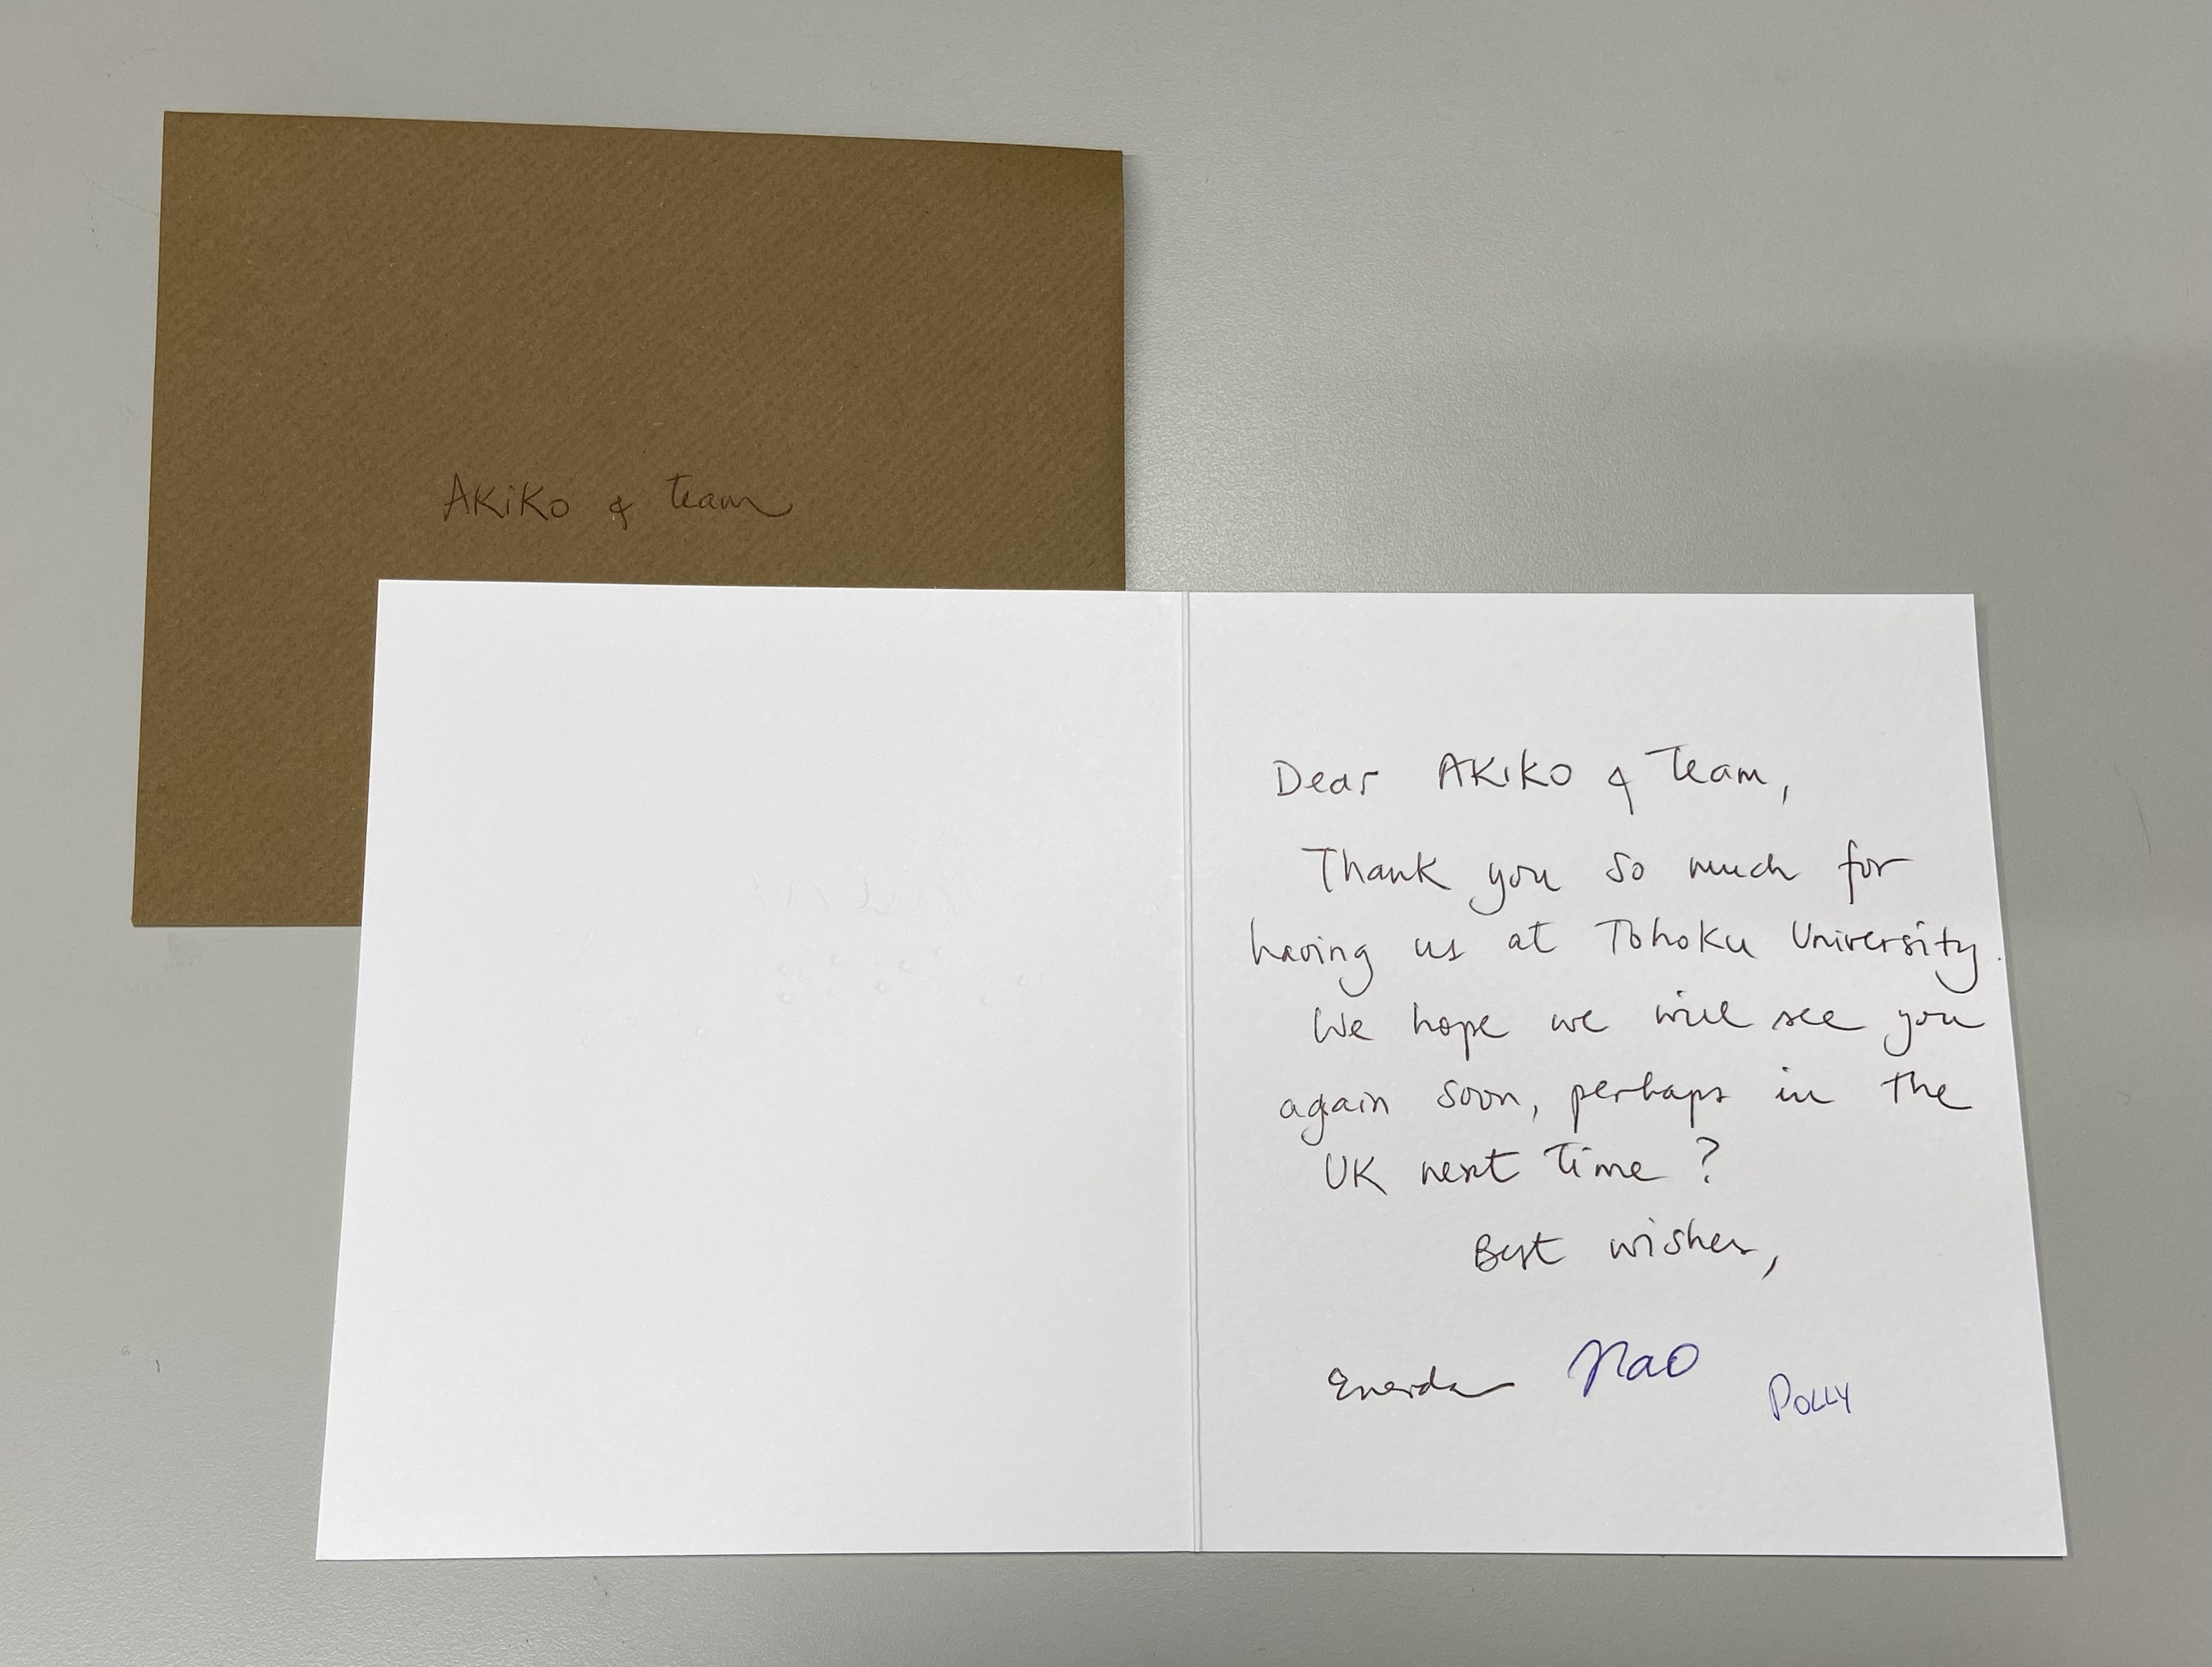 AKiKo & team
Dear AKIKO & Team,
Thank you so much for
having us at Tohoku University.
We hope we will see you
again soon, perhaps in the
UK next time ?
Best wishes,
Nao
POLLY